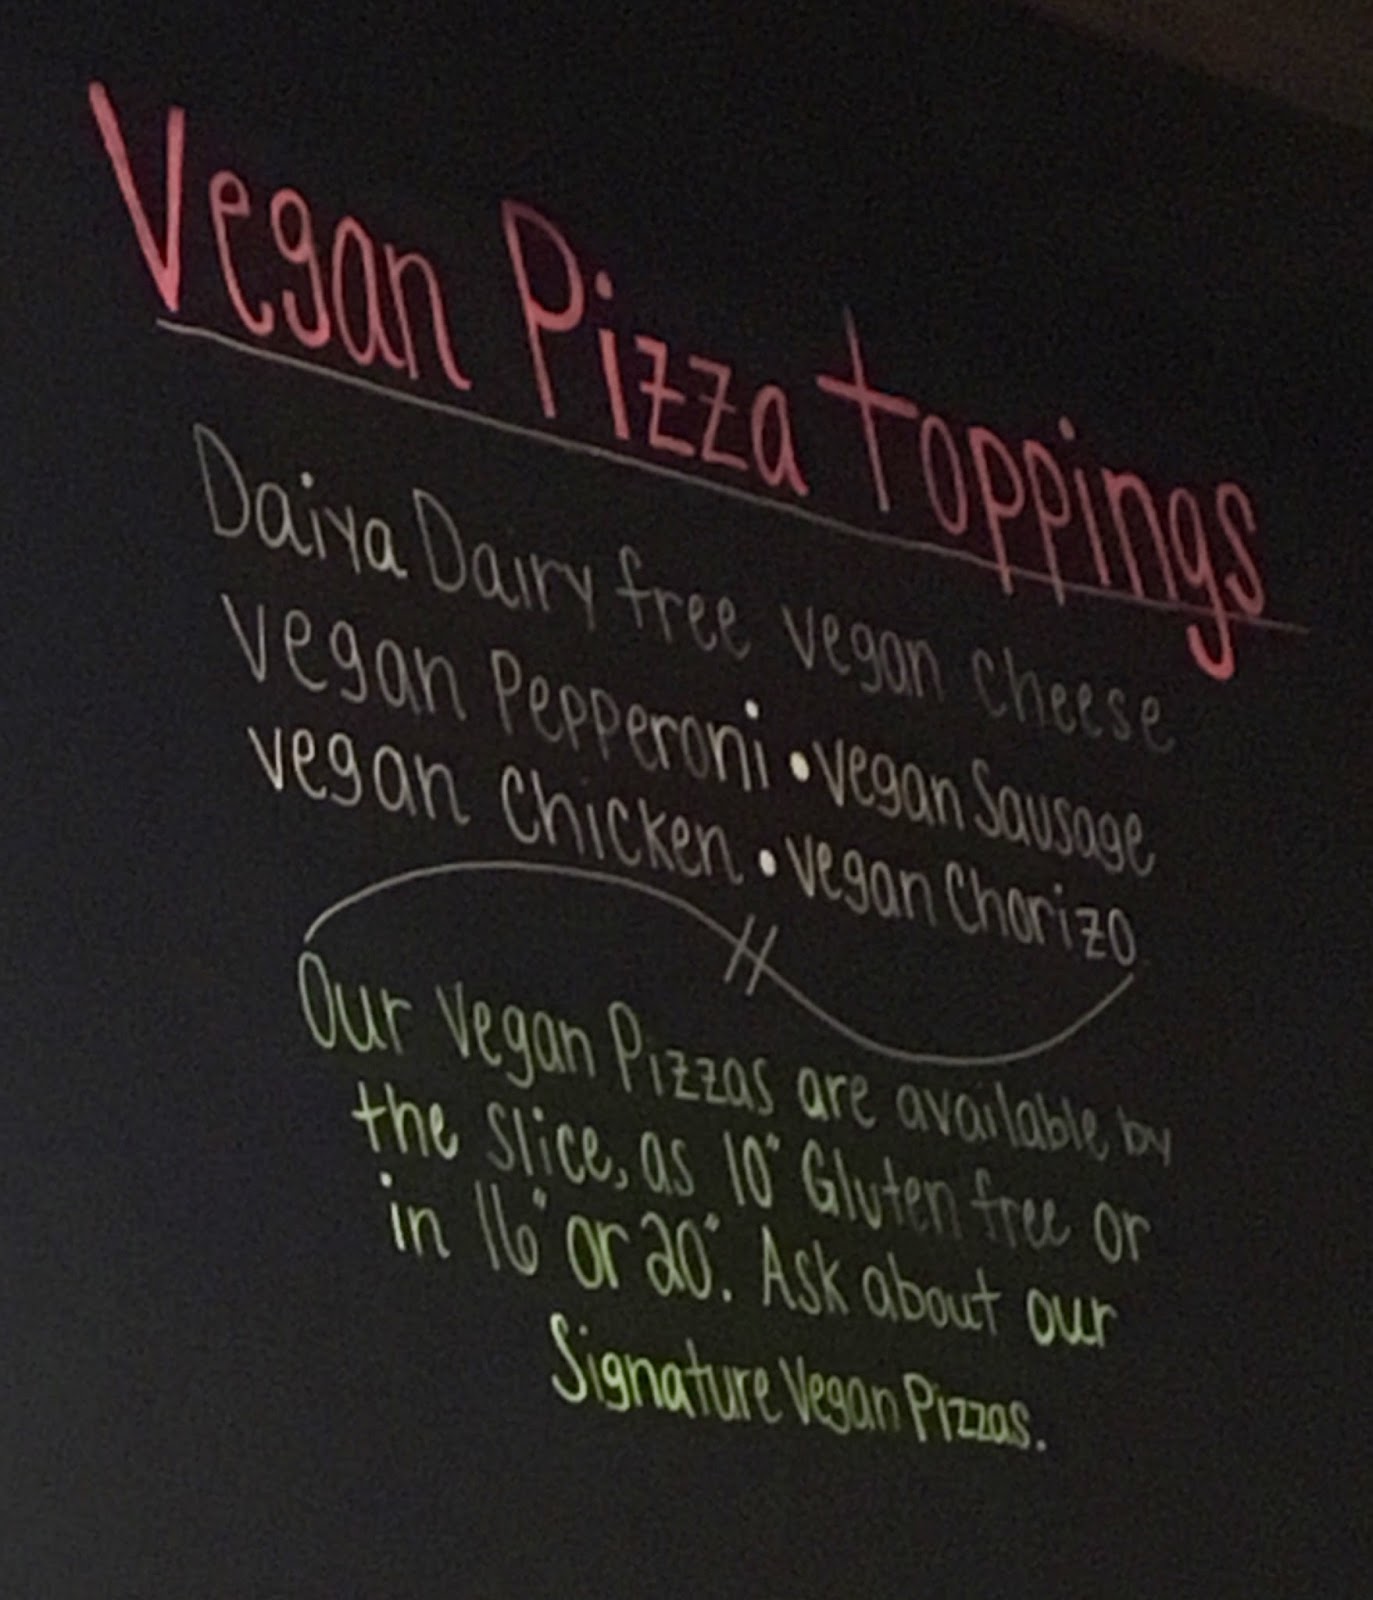 Vegan Pizza toppings
Daiya Dairy free vegan cheese
Vegan Pepperoni • Vegan Sausage
vegan Chicken • Vegan Chorizo
Our Vegan Pizzas are available by
the slice, as 10" Gluten free or
in 16" or 20". Ask about our
Signature Vegan Pizzas.